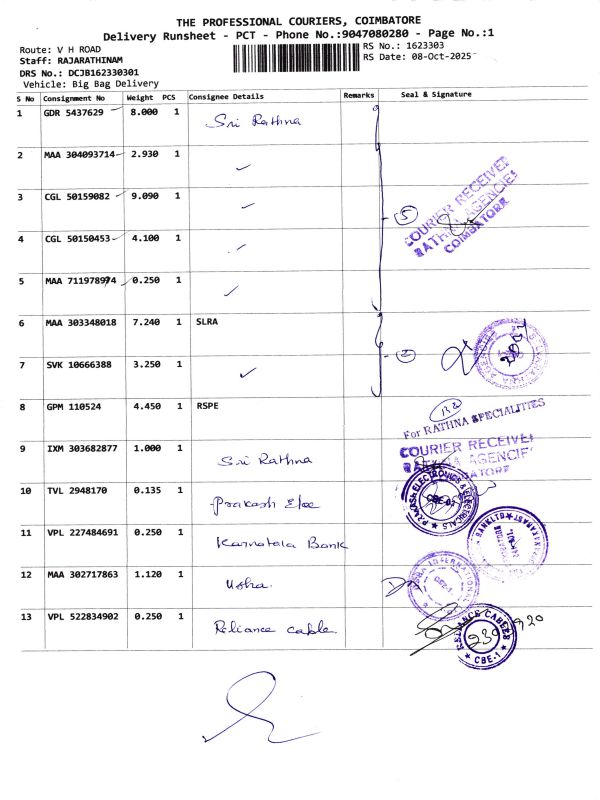 THE PROFESSIONAL COURIERS, COIMBATORE
Delivery Runsheet - PCT - Phone No.:9047080280 - Page No.:1
Route: V H ROAD
RS No.: 1623303
Staff: RAJARATHINAM
RS Date: 08-Oct-2025
DRS No.: DCJB162330301
Vehicle: Big Bag Delivery
S No Consignment No Weight PCS Consignee Details Remarks Seal & Signature
1 GDR 5437629 8.000 1 Sri Rathna
2 MAA 304093714 2.930 1 ✓
3 CGL 50159082 9.090 1 ✓
4 CGL 50150453 4.100 1 ✓
5 MAA 711978974 0.250 1 ✓
5
COURIER RECEIVED
RATHNA AGENCIES
COIMBATORE
6 MAA 303348018 7.240 1 SLRA
7 SVK 10666388 3.250 1 ✓
2
8 GPM 110524 4.450 1 RSPE
For RATHNA SPECIALITIES
9 IXM 303682877 1.000 1 Sri Rathna
COURIER RECEIVE
AGENCIE
ATORE
10 TVL 2948170 0.135 1 Prakash Elec
PRAKASH ELECTRONICS & ELECTRICALS
CBE-01
11 VPL 227484691 0.250 1 Karnatala Bank
BANK LTD
12 MAA 302717863 1.120 1 Usha
INTERNATIONAL
13 VPL 522834902 0.250 1 Reliance Cable.
RELIANCE CABLES
CBE-1